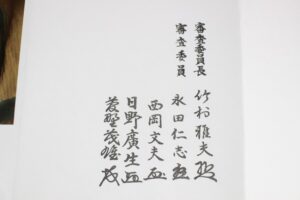 審査委員長 竹村雅夫
審査委員 永田仁志
西岡文夫
日野廣生
菱野茂雄